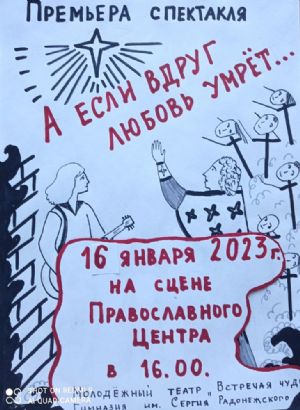 ПРЕМЬЕРА СПЕКТАКЛЯ
А ЕСЛИ ВДРУГ
ЛЮБОВЬ УМРЁТ...
16 ЯНВАРЯ 2023г.
НА СЦЕНЕ
ПРАВОСЛАВНОГО
ЦЕНТРА
В 16.00.
МОЛОДЁЖНЫЙ ТЕАТР, ВСТРЕЧАЯ ЧУД
ГИМНАЗИЯ ИМ. СЕРГИЯ РАДОНЕЖСКОГО
SHOT ON REDMI
AI QUAD CAMERA